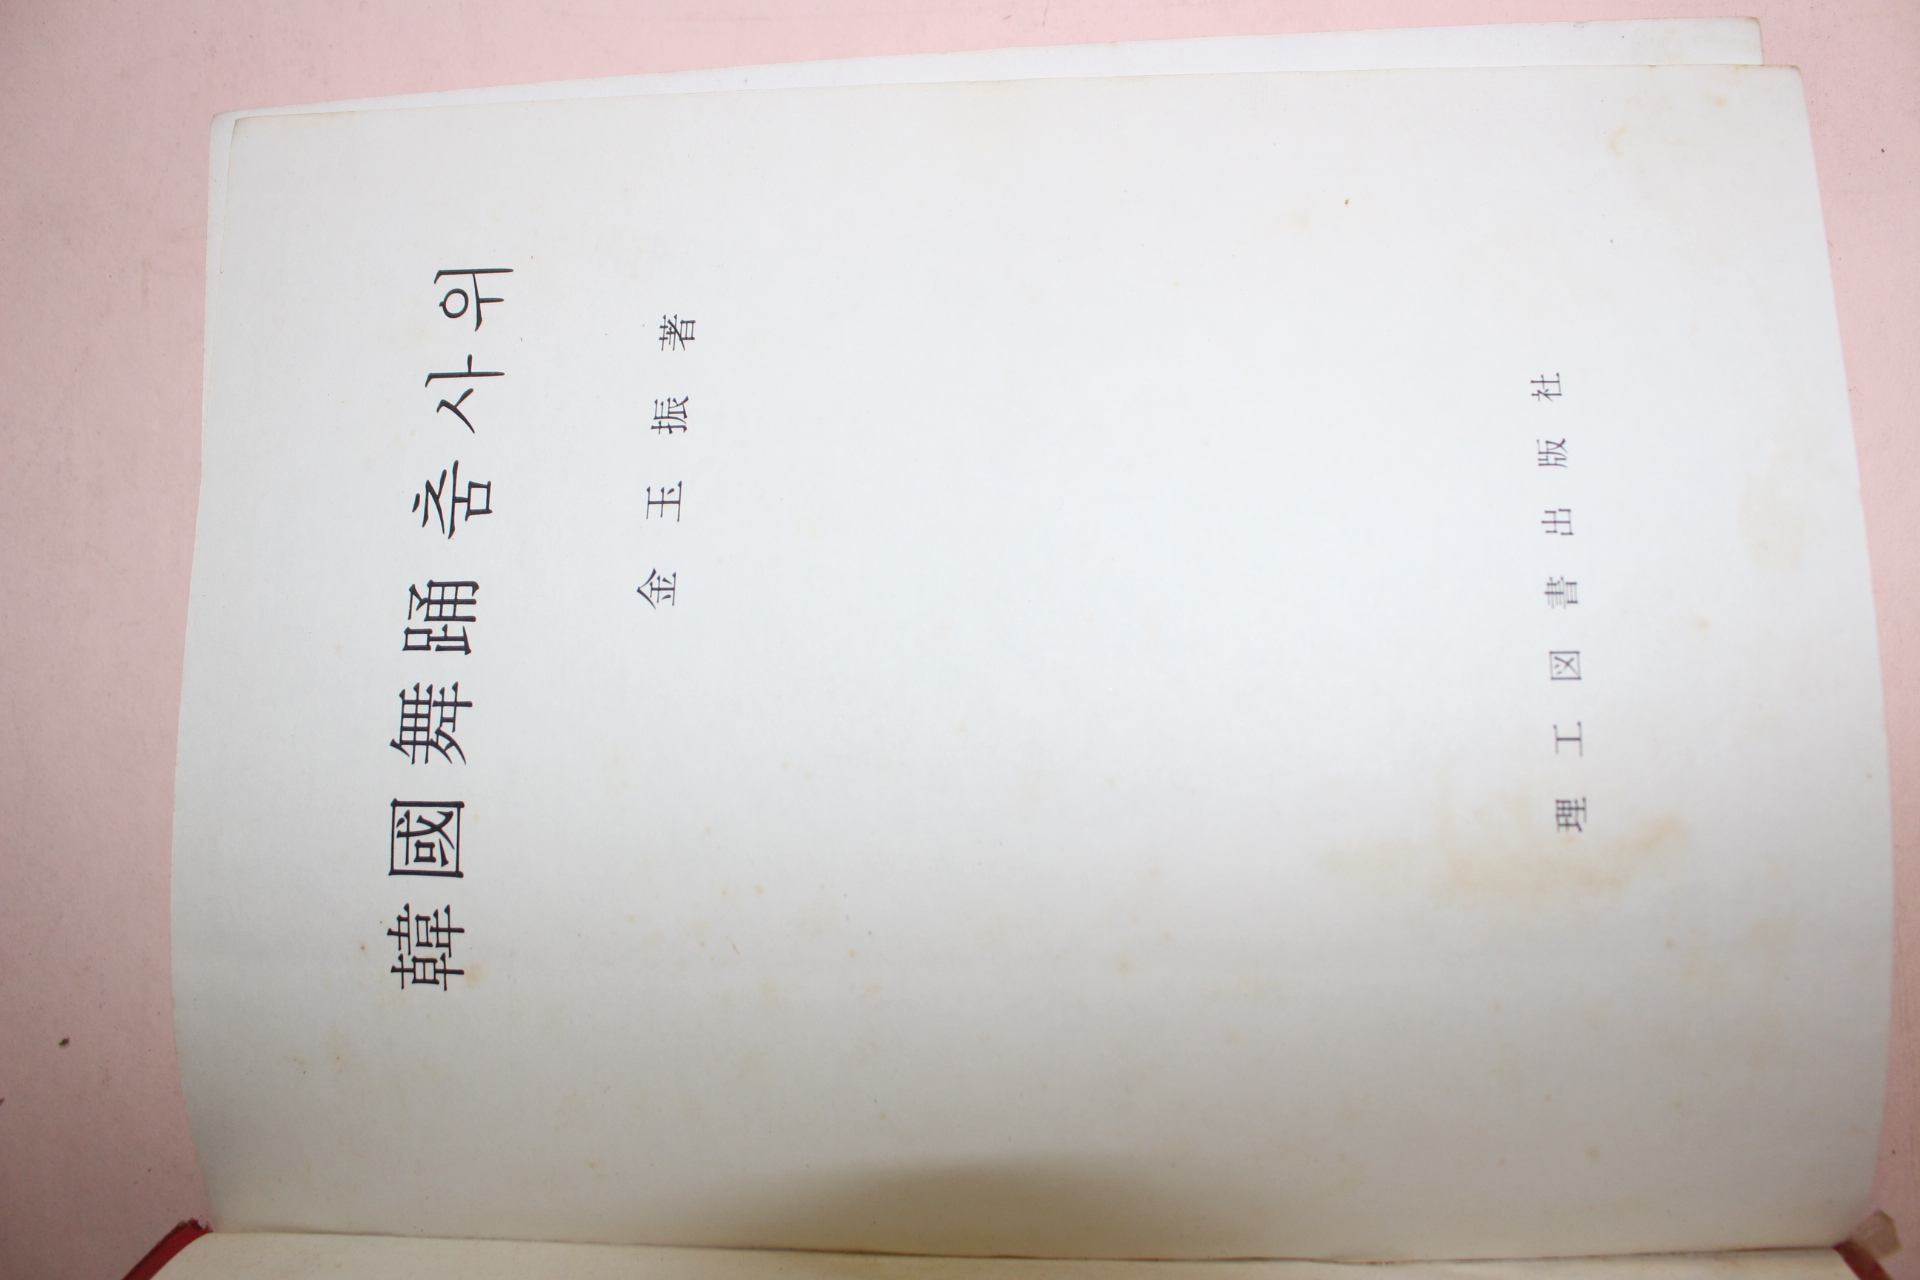 韓國舞踊춤사위
金玉振著
理工図書出版社